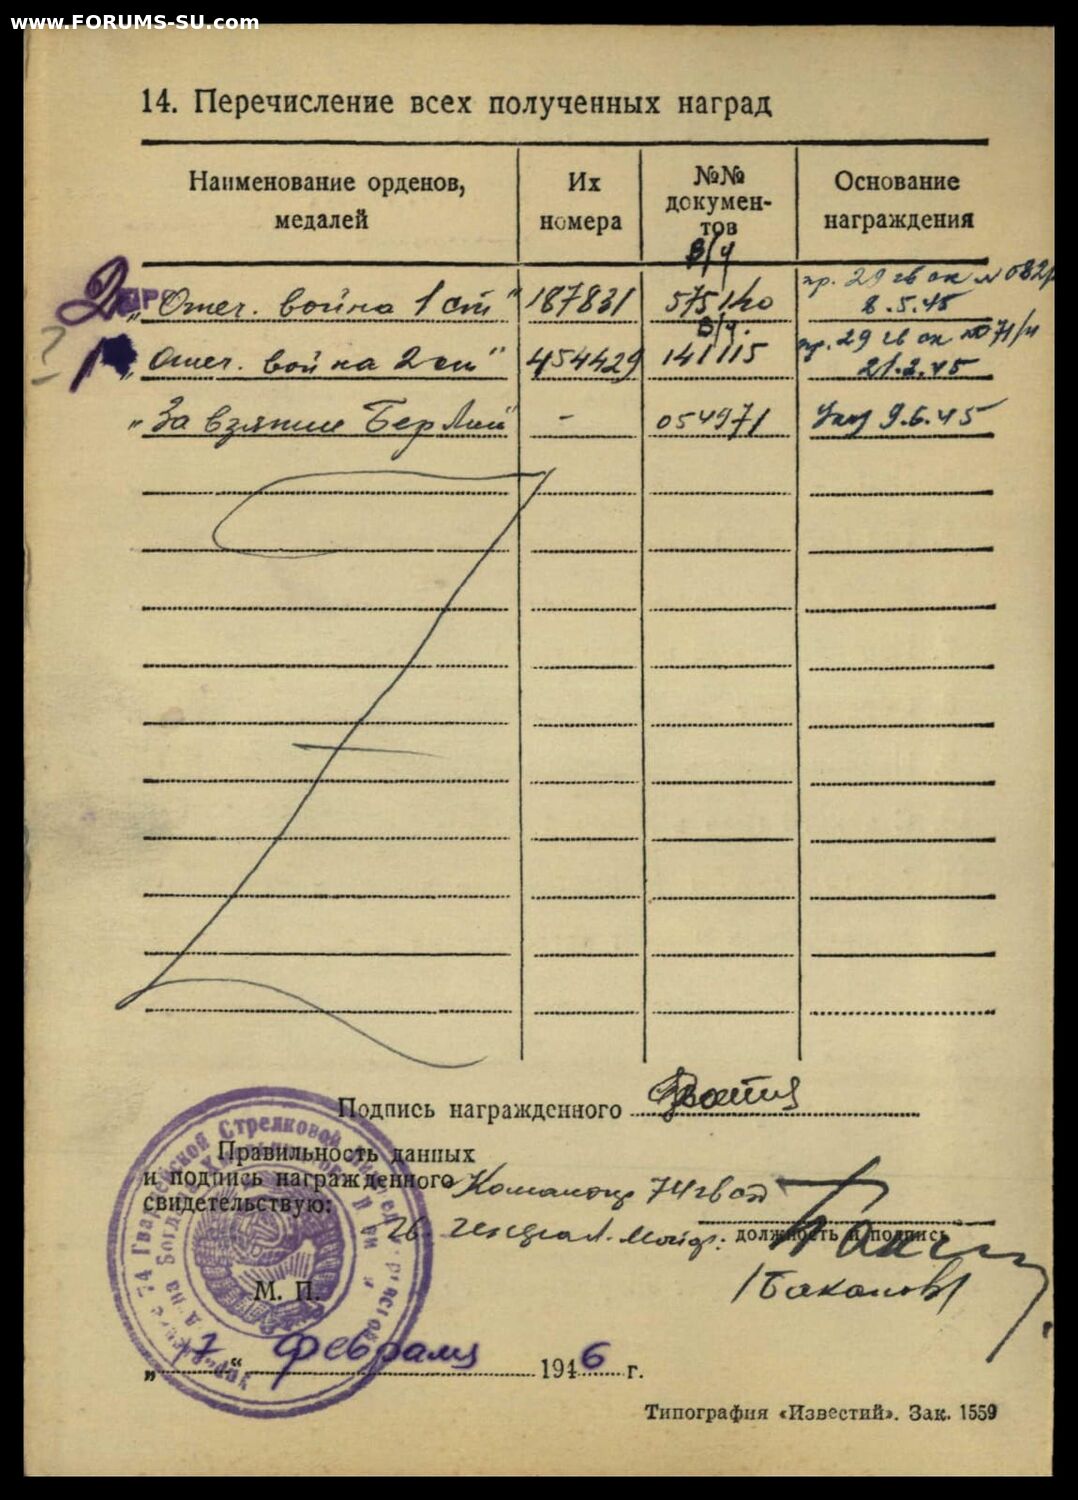 www.FORUMS-SU.com
14. Перечисление всех полученных наград
Наименование орденов, медалей
Их номера
№№ документов
Основание награждения
в/ч
„Отеч. война 1 ст" 187831 575140 пр. 29 гв ск №082/н
8.5.45
в/ч.
„Отеч. война 2 ст" 454429 141115 пр. 29 гв ск №071/н
21.2.45
„За взятие Берлин" - 054971 Указ 9.6.45
Подпись награжденного
Правильность данных
и подпись награжденного
свидетельствую:
Командир 74 гв сд
гв. генерал-майор:
должность и подпись
/Баканов/
М. П.
„17" февраля 1946 г.
Типография «Известий». Зак. 1559